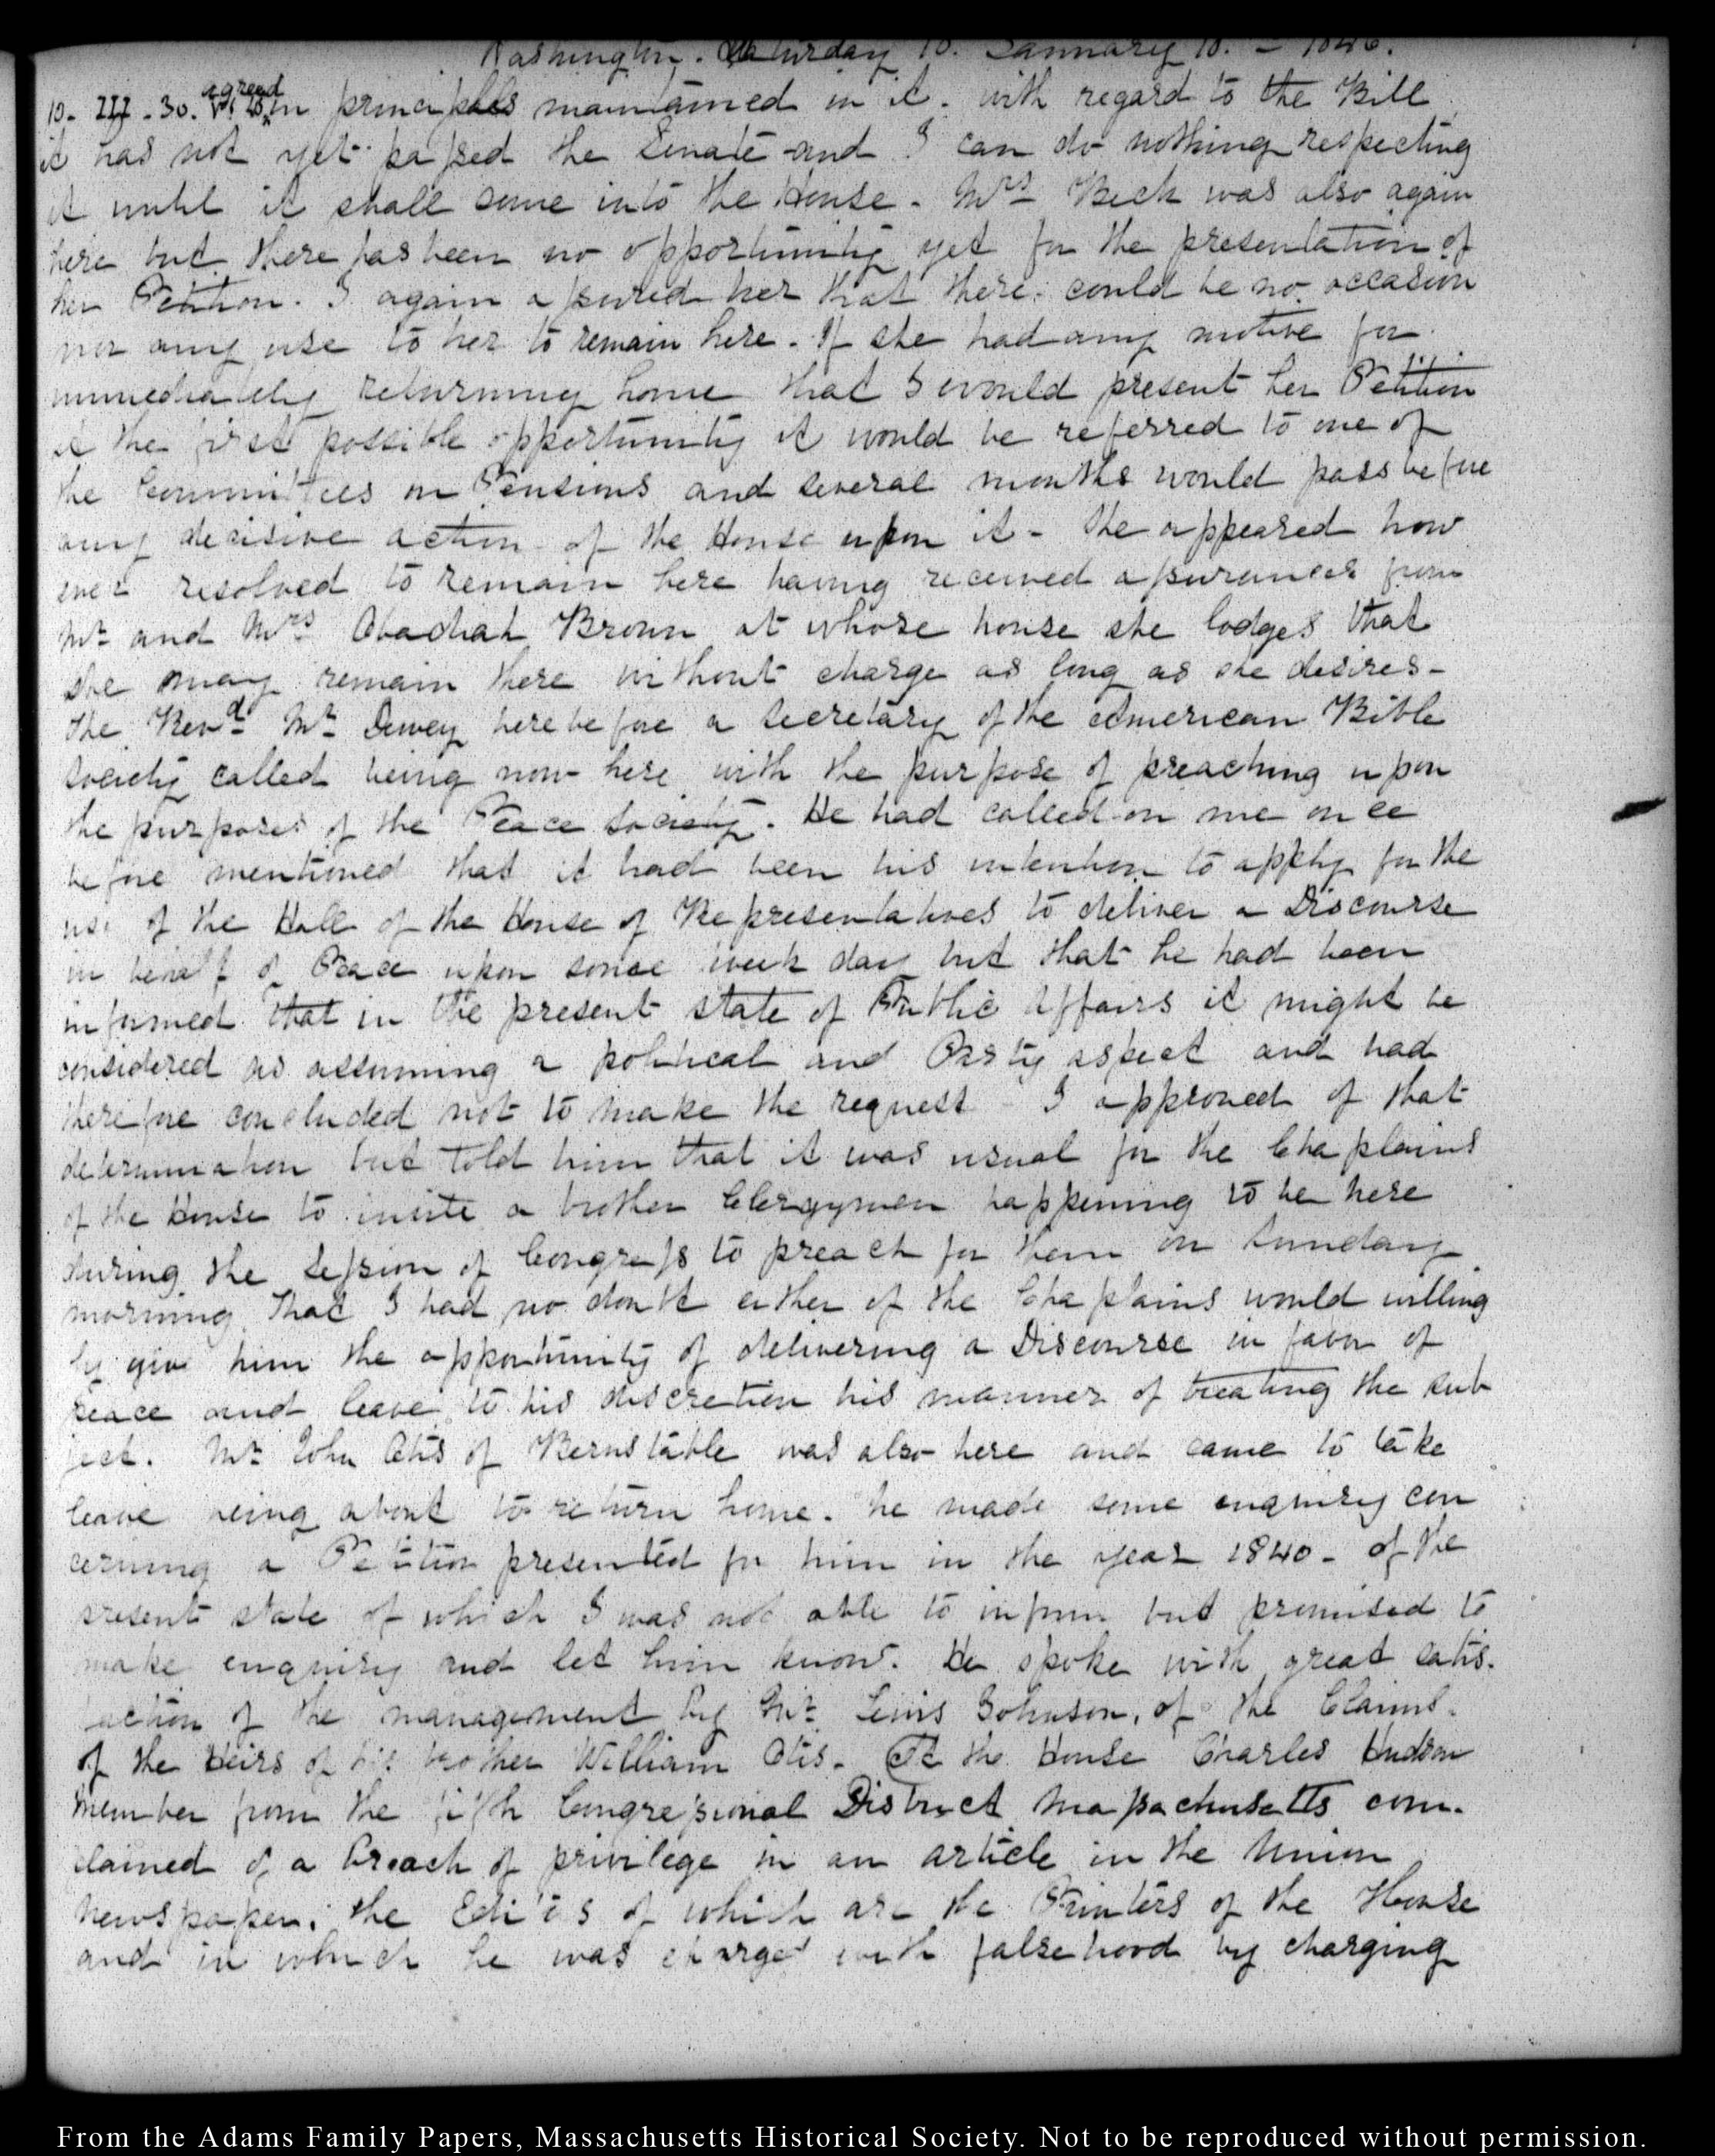 Washington. Saturday 10. January 10. – 1846.
10. III. 30. agreed in principles maintained in it. with regard to the Bill
it has not yet passed the Senate and I can do nothing respecting
it until it shall come into the House. Mrs Beck was also again
here but there has been no opportunity yet for the presentation of
her Petition. I again assured her that there could be no occasion
nor any use to her to remain here. If she had any motive for
immediately returning home that I would present her Petition
at the first possible opportunity it would be referred to one of
the Committees on Pensions and several months would pass before
any decisive action of the House upon it – She appeared how
ever resolved to remain here having received assurances from
Mr and Mrs Obadiah Brown at whose house she lodges that
she may remain there without charge as long as she desires –
The Revd Mr Dewey heretofore a Secretary of the American Bible
Society called being now here with the purpose of preaching upon
the purposes of the Peace Society. He had called on me once
before mentioned that it had been his intention to apply for the
use of the Hall of the House of Representatives to deliver a Discourse
in behalf of Peace upon some week day but that he had been
informed that in the present state of Public Affairs it might be
considered as assuming a political and Party aspect and had
therefore concluded not to make the request I approved of that
determination but told him that it was usual for the Chaplains
of the House to invite a brother Clergymen happening to be here
during the Session of Congress to preach for them on Sunday
morning. That I had no doubt either of the Chaplains would willing
ly give him the opportunity of delivering a Discourse in favor of
peace and leave to his discretion his manner of treating the sub
ject. Mr John Otis of Bernstable was also here and came to take
leave being about to return home. he made some enquiry con
cerning a Petition presented for him in the year 1840 – of the
present state of which I was not able to inform but promised to
make enquiry and let him know. He spoke with great satis.
faction of the management by Mr Lewis Johnson, of the Claims.
of the Heirs of his brother William Otis – At the House Charles Hudson
member from the fifth Congressional District Massachusetts com.
plained of a breach of privilege in an article in the Union
Newspaper; the Editors of which are the Printers of the House
and in which he was charged with falsehood by charging
From the Adams Family Papers, Massachusetts Historical Society. Not to be reproduced without permission.